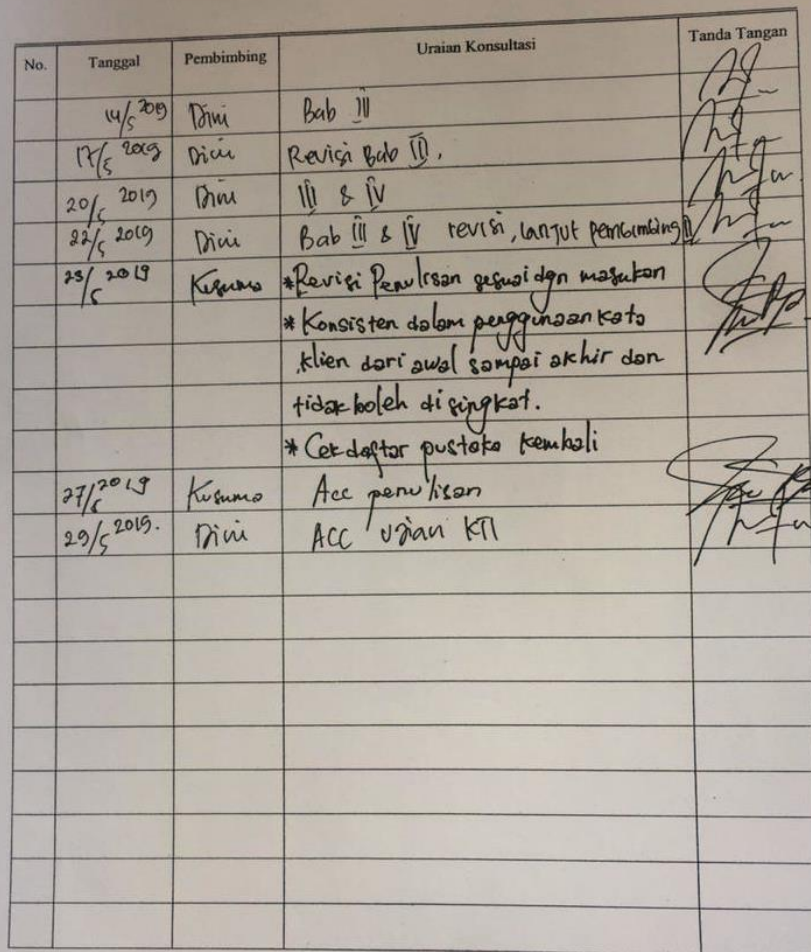 No. Tanggal Pembimbing Uraian Konsultasi Tanda Tangan
14/5 2019 Dini Bab
17/5 2019 Dini Revisi Bab III,
20/5 2019 Dini III & IV
22/5 2019 Dini Bab III & IV revisi, lanjut pembimbing II
23/5 2019 Kusuma *Revisi Penulisan sesuai dgn masukan
* Konsisten dalam penggunaan kata
klien dari awal sampai akhir dan
tidak boleh disingkat.
* Cek daftar pustaka kembali
27/5 2019 Kusuma Acc penulisan
29/5 2019. Dini ACC ujian KTI